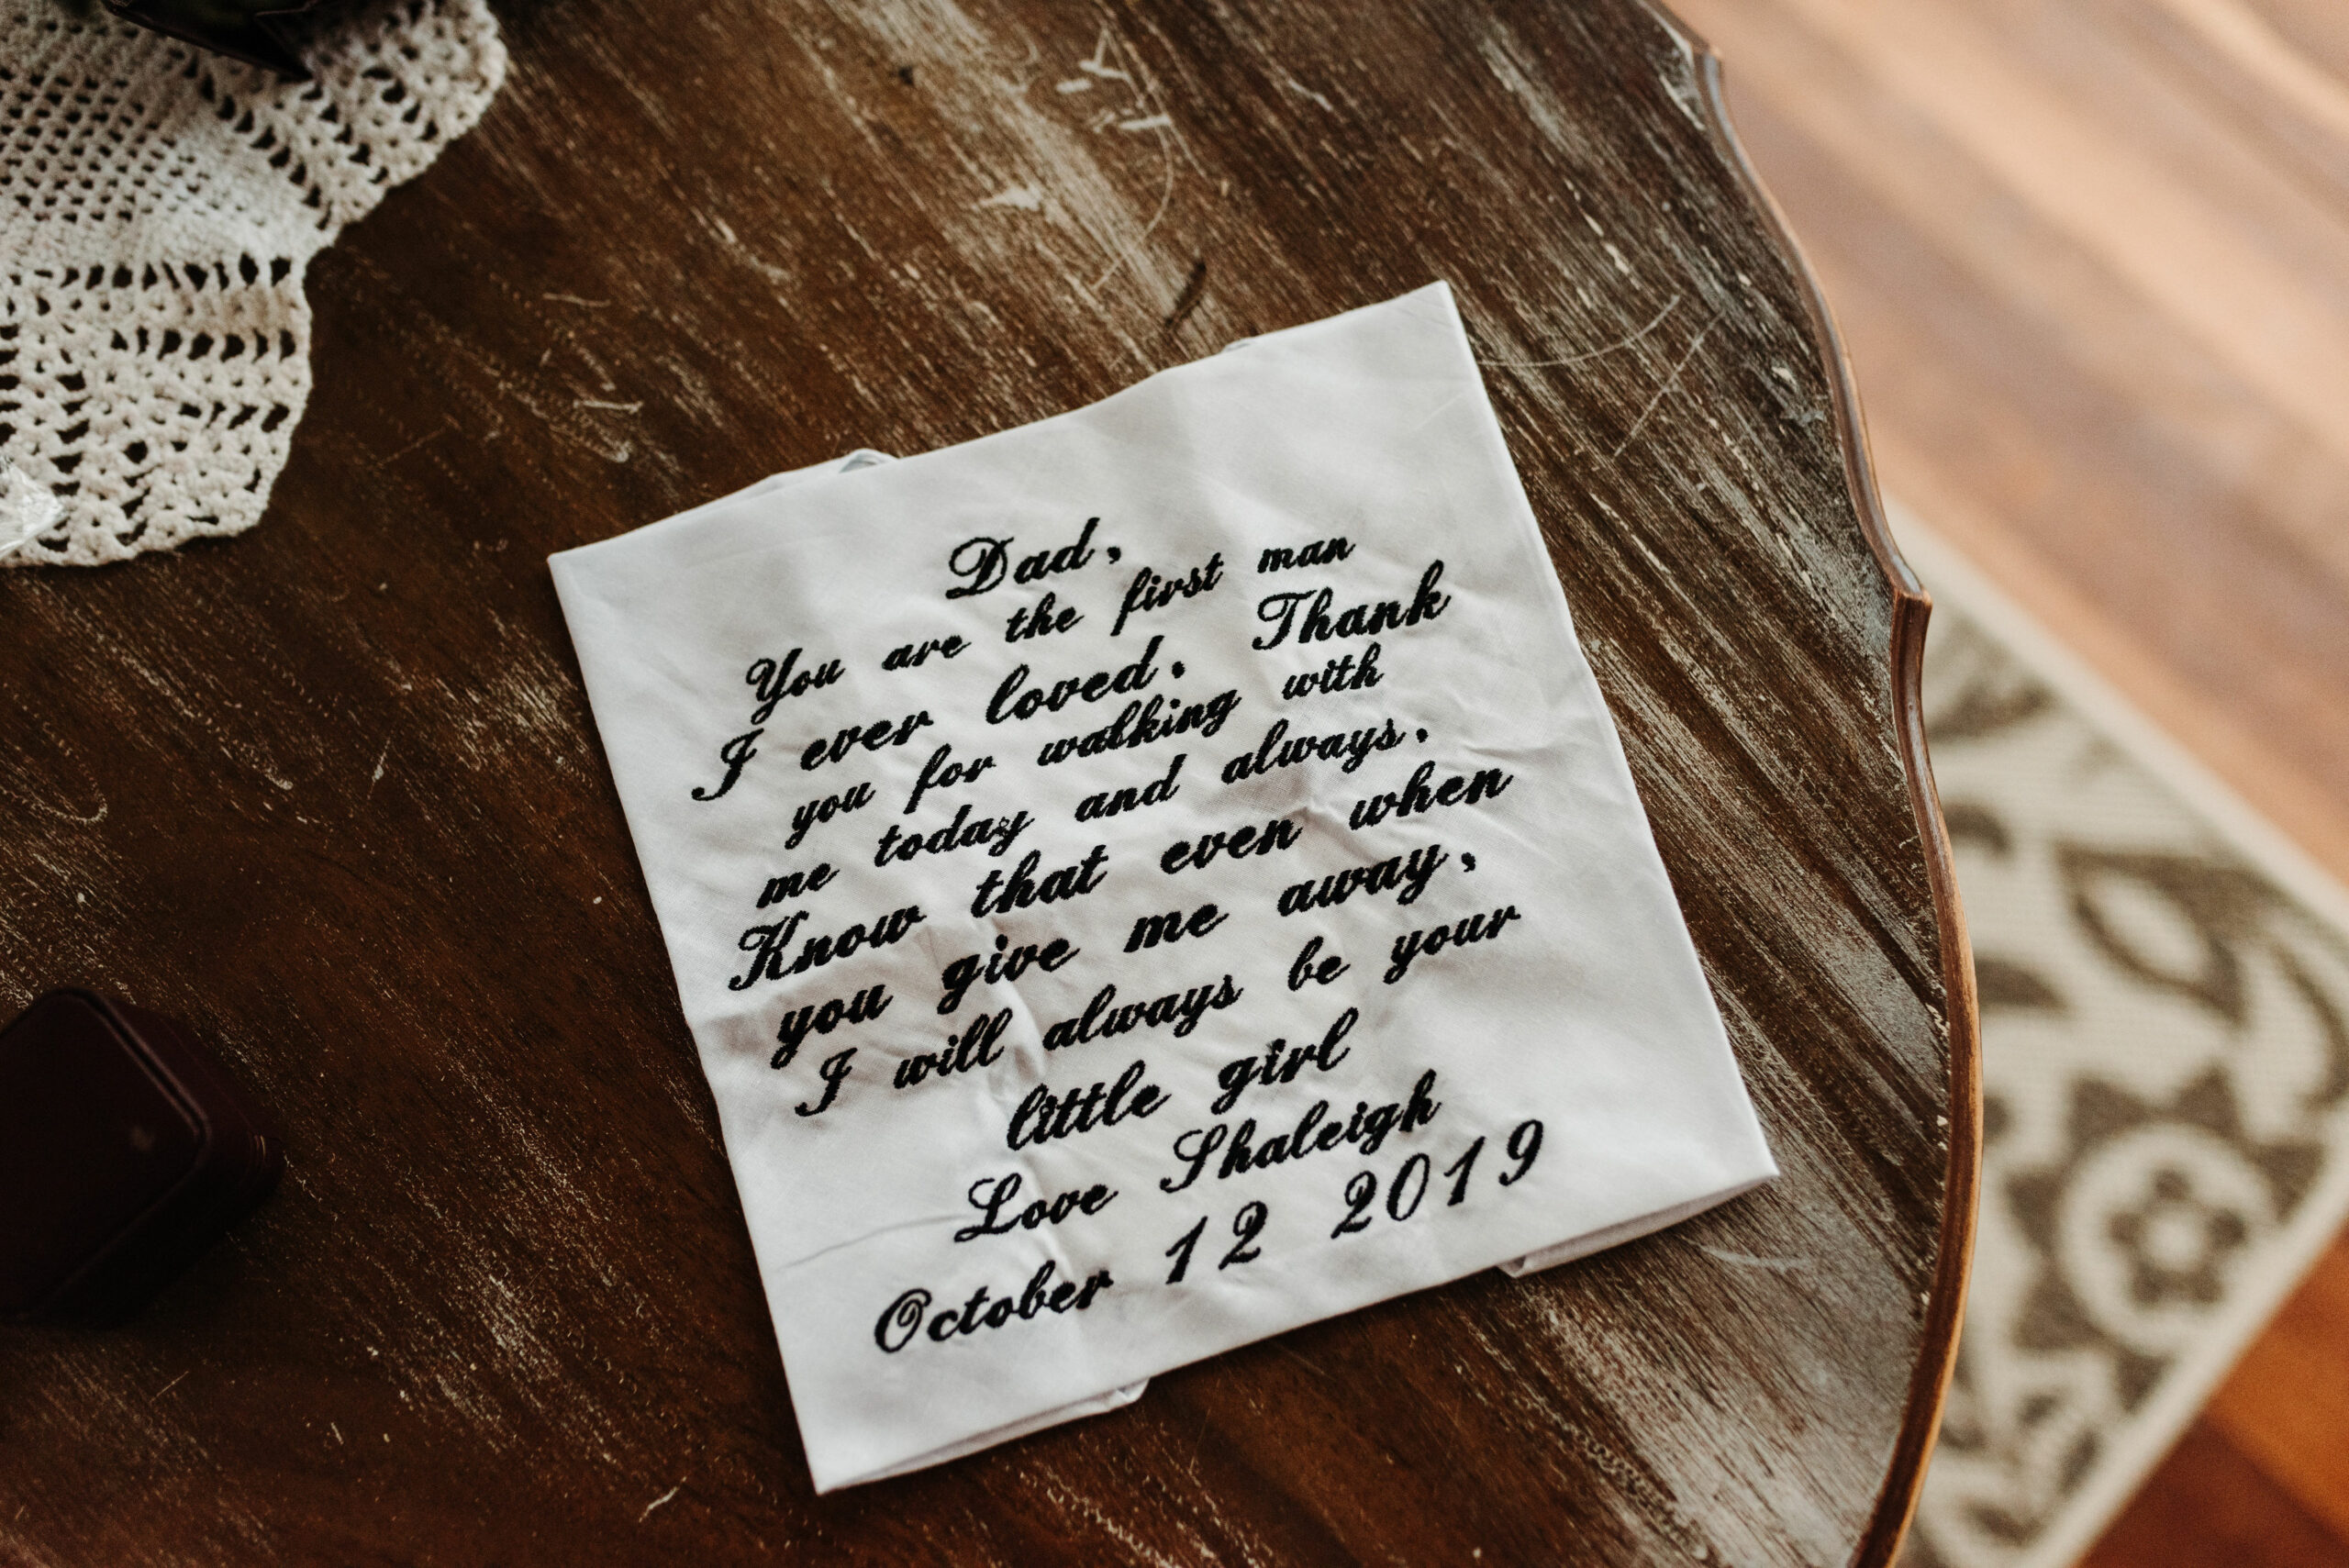 Dad,
You are the first man
I ever loved. Thank
you for walking with
me today and always.
Know that even when
you give me away,
I will always be your
little girl
Love Shaleigh
October 12 2019